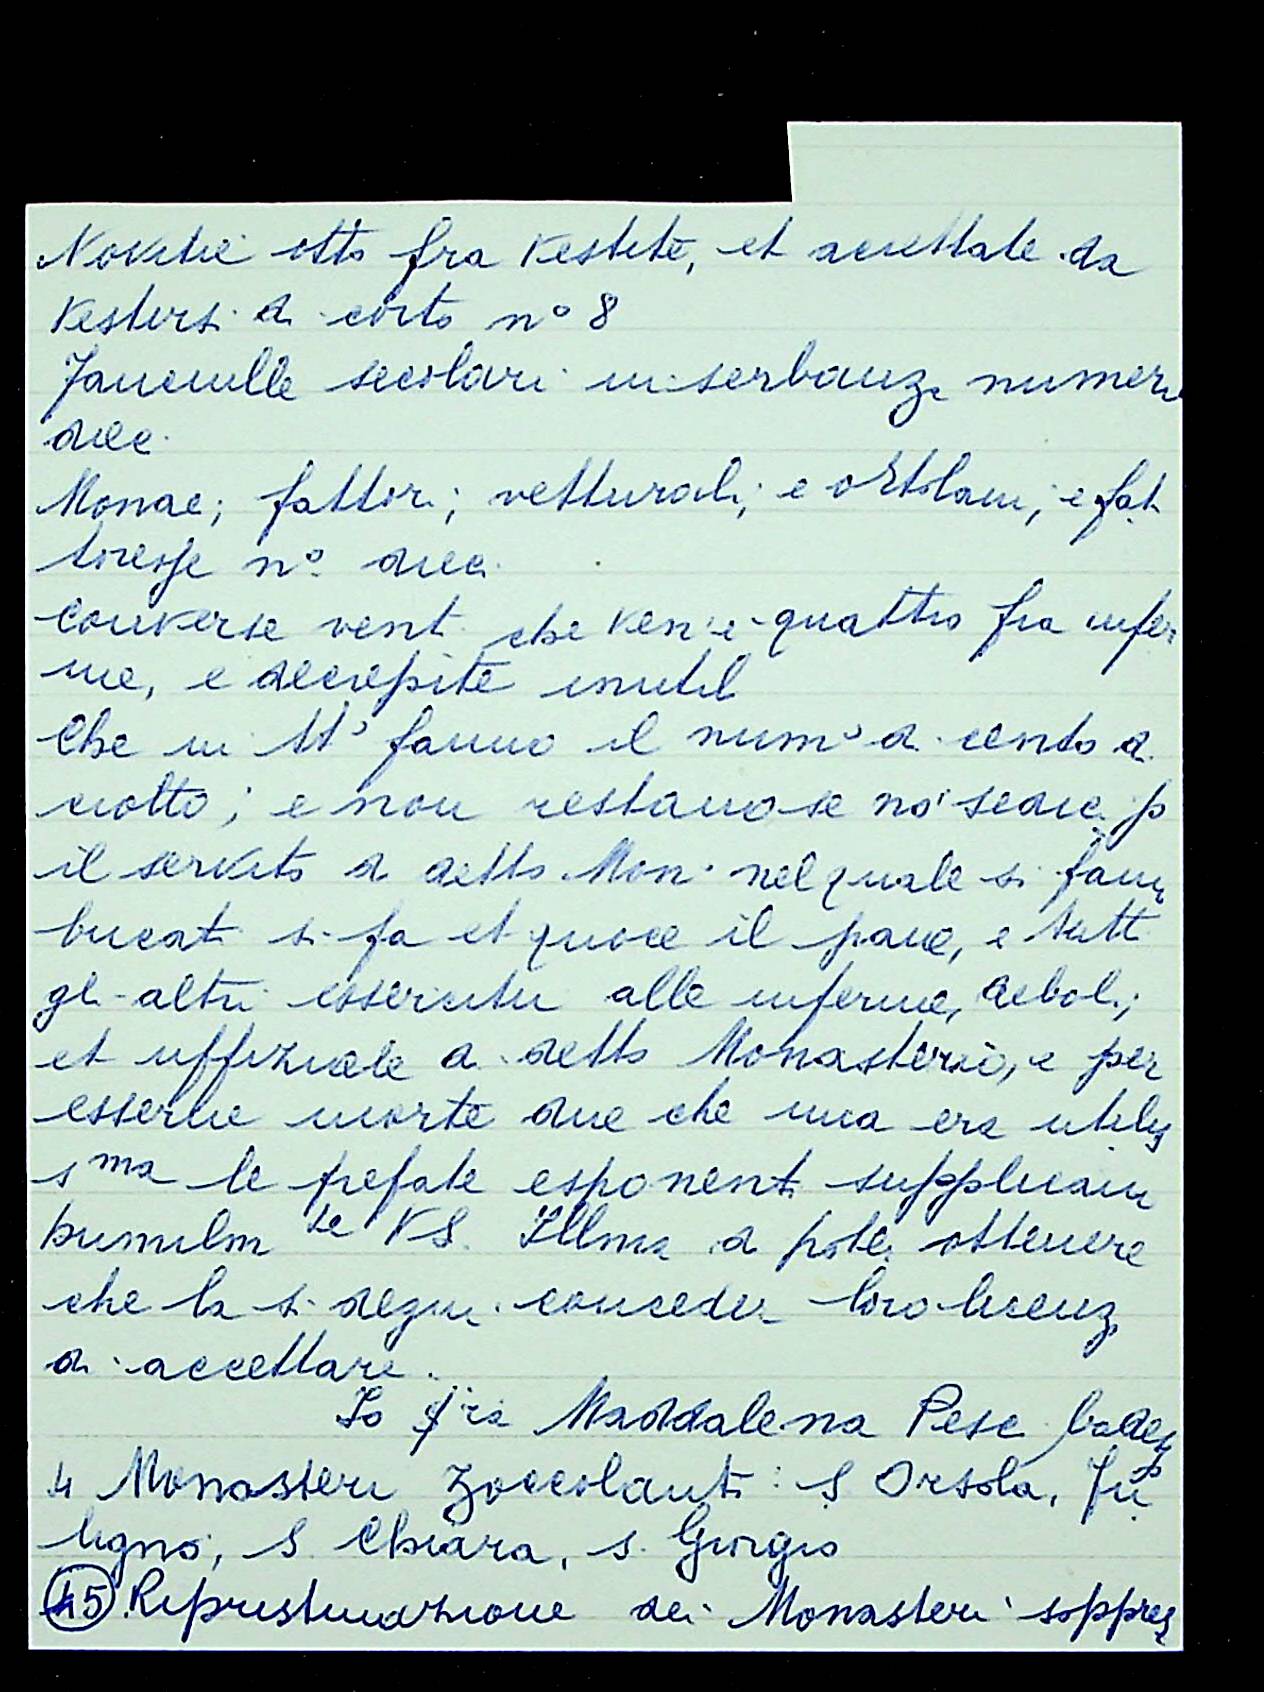 Novitie otto fra vestite, et accettate da
vestirsi di corto nº 8
Fanciulle secolari in serbanza numero
dieci
Monaci; fattori; vetturali; e ortolani; e fat
toresse nº dieci
Converse venti che ven'è quattro fra infer
me, e decrepite inutili
Che in tt° fanno il num° di cento di
ciotto; e non restano se no' sedici p
il servito di detto Mon. nel quale si fanno
bucati si fa et quoce il pane, e tutti
gli altri essercitii alle inferme, deboli;
et uffiziale di detto Monasterio, e per
esserne morte due che una era utilis
sma le prefate esponenti supplicano
humilm te VS. Illma di poter ottenere
che la si degni conceder loro licenza
di accettare.
Io Maddalena Pesc badessa
4 Monasteri Zoccolanti: S Orsola, Fu
ligno, S. Chiara, S. Giorgio
45. Ripristinazione dei Monasteri soppres